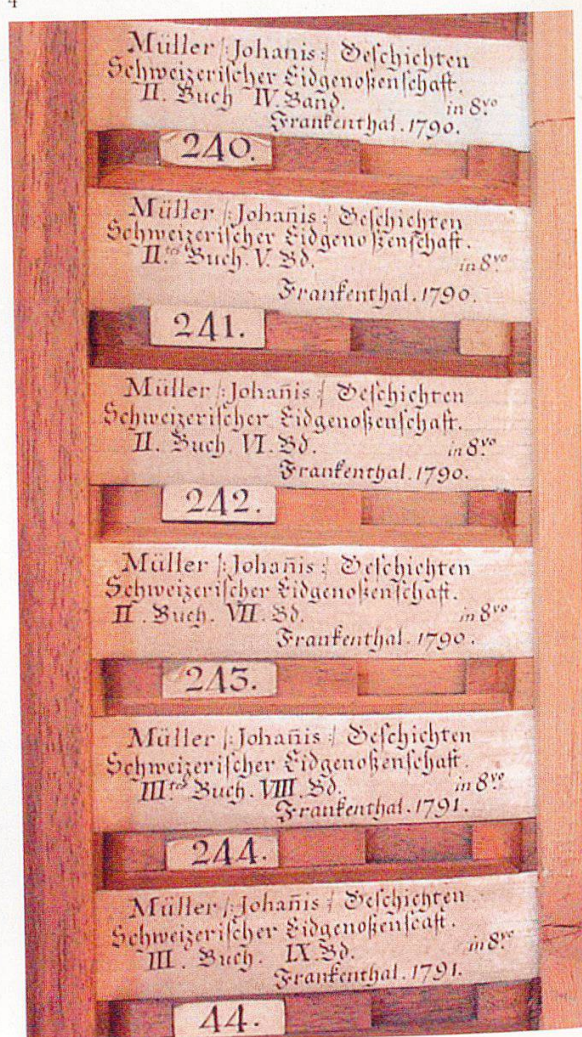 4
Müller /: Johanis :/ Geschichten
Schweizerischer Eidgenoßenschaft.
II. Buch IV. Band. in 8vo
Frankenthal. 1790.
240.
Müller /: Johañis :/ Geschichten
Schweizerischer Eidgenoßenschaft.
IItes Buch. V. Bd. in 8vo
Frankenthal. 1790.
241.
Müller /: Johañis :/ Geschichten
Schweizerischer Eidgenoßenschaft.
II. Buch VI. Bd. in 8vo
Frankenthal. 1790.
242.
Müller /: Johañis :/ Geschichten
Schweizerischer Eidgenoßenschaft.
II. Buch. VII. Bd. in 8vo
Frankenthal. 1790.
243.
Müller /: Johañis :/ Geschichten
Schweizerischer Eidgenoßenschaft.
IIItes Buch. VIII. Bd. in 8vo
Frankenthal. 1791.
244.
Müller /: Johañis :/ Geschichten
Schweizerischer Eidgenoßenscaft.
III. Buch. IX. Bd. in 8vo
Frankenthal. 1791.
44.